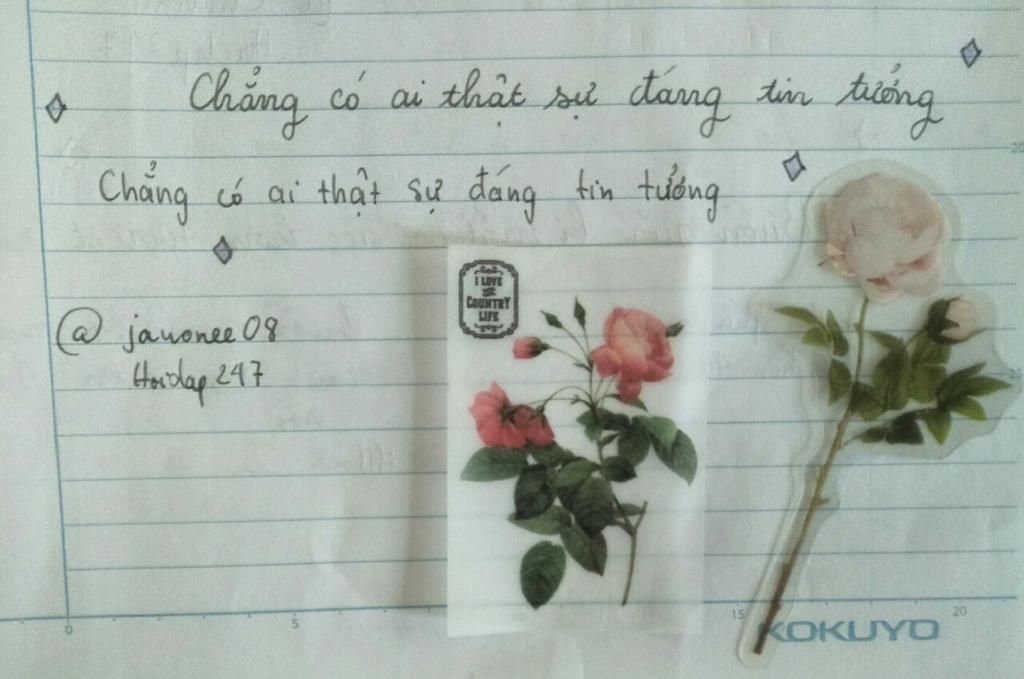 Chẳng có ai thật sự đáng tin tưởng
Chẳng có ai thật sự đáng tin tưởng
@ jauonee08
Hoidap247
I LOVE
COUNTRY
LIFE
20
0
5
15
20
KOKUYO